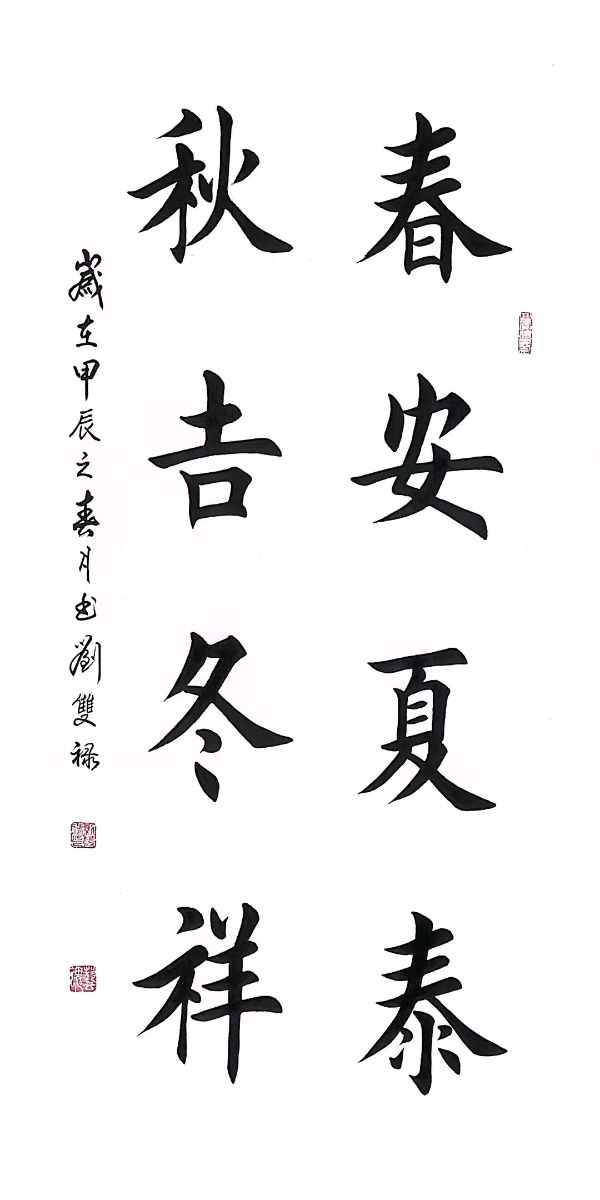 春安夏泰
秋吉冬祥
歲在甲辰之春月书劉雙禄